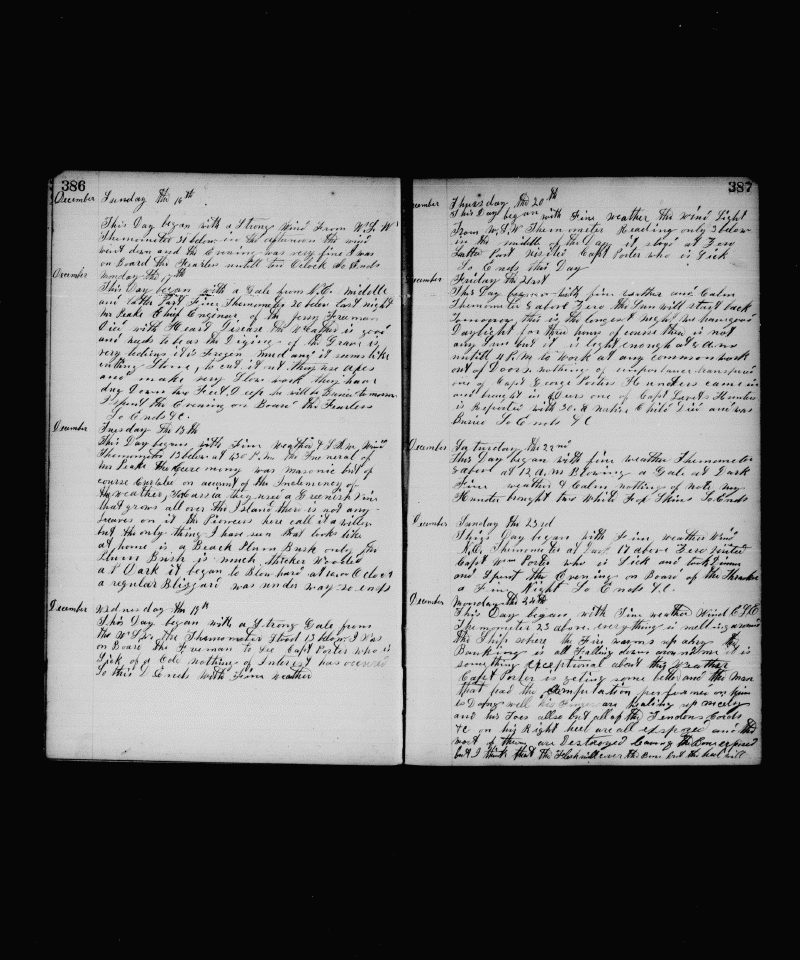 386
December Sunday the 16th
This Day began with a Strong Wind From W.S.W
Themometer 31 below in the afternoon the wind
went down and the Evening was very fine I was
on Board the Fearless untill ten Oclock So Ends
December Monday the 17th
This Day began with a Gale from N.E. middle
and latter Part Fine Themometer 30 below last night
the Chief Engineer of the Jesse Freeman
Died with Heard Disease the Weather is good
and the Diging of the Grave is
very tedious it is Frozen mud and it seems like
cutting Stone to cut it out they use axes
and make very Slow work they have
dug Down two Feet Deep he will be Buried tomorrow
I spent the Evening on Board the Fearless
So Ends &c.
December Tuesday the 18th
This Day begins with Fine Weather & S.W. Wind
Themometer 13 below at 1.30 P.m. the Funeral of
the ceremony was masonic but of
course on account of the Inclemency of
the Weather, they used a Greenish
that grows all over the Island there is not any
Leaves on it the Pioneers here call it a willow
but the only thing I have seen that looks like
at home is a Beach Plum Bush only the
Plum Bush is much thicker Wooded
at Dark it began to Blow hard at seven Oclock
a regular Blizzard was under way so ends
December Wednesday the 19th
This Day began with a Strong Gale from
the W.S.W. the Themometer Stood 13 below I was
on Board the Freeman to See Capt Porter who is
Sick of a Cold nothing of Interest has occured
So this D Ends with Fine Weather
387
Thursday the 20th
This Day began with Fine weather the Wind Light
From W.S.W Themometer Reading only 3 below
in the middle of the Day it stood at Zero
Latter Part visited Capt Porter who is Sick
So Ends this Day
December Friday the 21st
This Day began with fine weather and Calm
Themometer 2 about Zero the Sun will start back
tomorrow this is the longest night we have good
Daylight for three hours of course there is not
any Sun but it is light enough at 8 A.m
untill 4 P.m to work at any common work
out of Doors nothing of importance transpired
one of Capt George Porters Hunters came in
and brought in Deers one of Capt Hunters
is Reported with 30. a native Child Died and was
Buried So Ends &C
December Saturday the 22nd
This Day began with fine weather Themometer
above at 12 A.m Blowing a Gale at Dark
Fine weather & Calm nothing of note my
Hunter brought two White Fox Skins So Ends
December Sunday the 23rd
This Day began with Fine weather Wind
N.E. Themometer at 17 above Zero visited
Capt Wm Porter who is Sick and took Dinner
and Spent the Evening on Board of the Thrasher
a Fine Night So Ends &C.
December Monday the 24th
This Day began with Fine weather Wind
Themometer 23 above. everything is melting around
the Ship where the Fire warms up any the
Banking is all Falling down around me it is
something exceptional about this weather
Capt Porter is geting some better and the Man
that had the Amputation performed on him
is Doing well his Fingers are healing up nicely
and his Toes allso but all of the Tendons Cords
&c on his Right heel are all exposed and the
most of them are Destroyed Leaving the Bone exposed
but I think that the Flesh will cover the Bone but the heel will